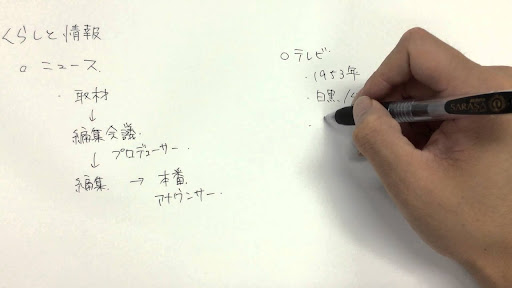 くらしと情報
○ ニュース
・取材
↓
編集会議
↓ プロデューサー
編集 → 本番
アナウンサー
○ テレビ
・1953年
・白黒
SARASA